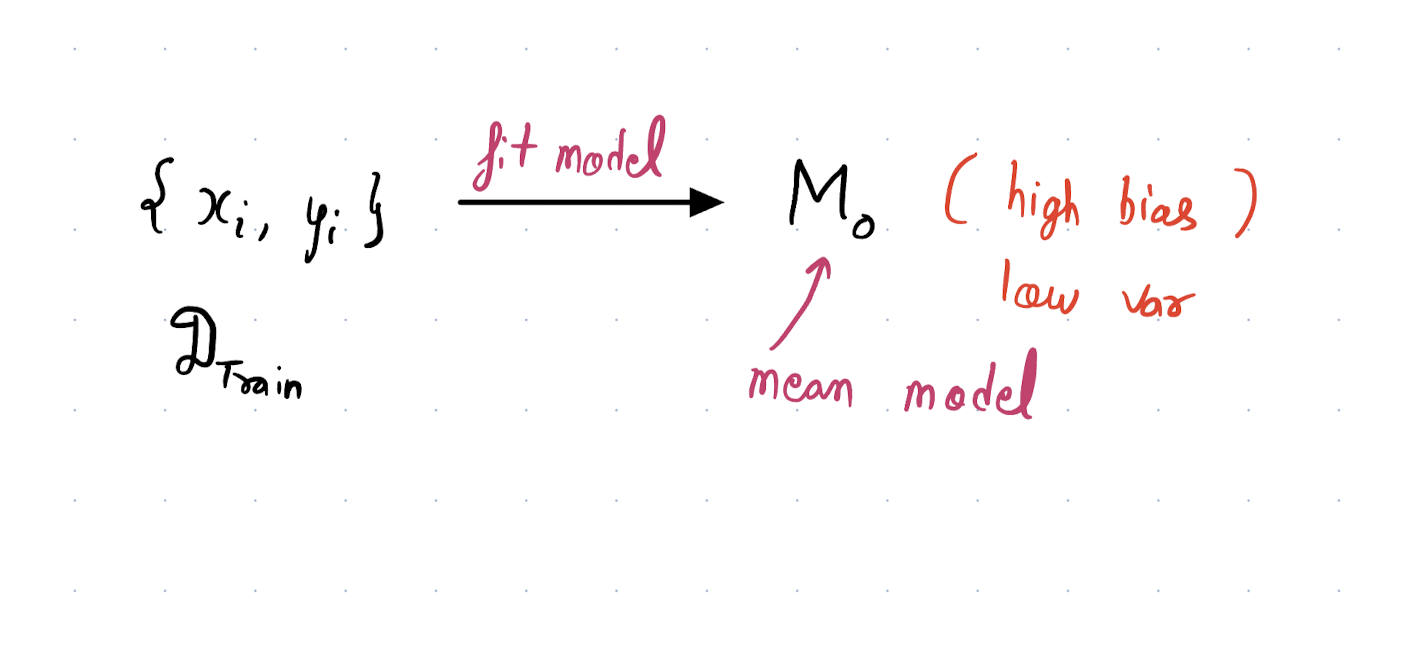 fit model
{ xi, yi } M0 ( high bias )
low var
DTrain
mean model